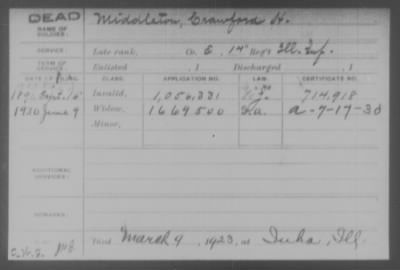 DEAD
NAME OF SOLDIER: Middleton, Crawford H.
SERVICE: Late rank, Co. E, 14" Reg't Ill. Inf.
TERM OF SERVICE: Enlisted , 1 Discharged , 1
DATE OF FILING. CLASS. APPLICATION NO. LAW. CERTIFICATE NO.
Sept. 15 Invalid, 1,056,331 714,918
1930 June 9 Widow, 1669500 A-7-17-30
Minor,
ADDITIONAL SERVICES:
REMARKS:
Died March 9, 1923, at Iuka, Ill.